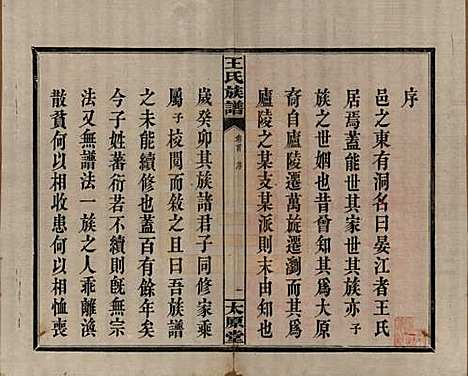 序
邑之東有洞名曰晏江者王氏
居焉蓋能世其家世其族亦子
族之世姻也昔有名為大原
裔自廬陵遷萬旋遷瀏而其為
廬陵之某支某派則末由切
王氏族譜
卷首
序
一
太原堂
歲癸卯其族諸君子同修家乘
屬子校閱而敘之且曰吾族譜
之未能續修也蓋百有餘年矣
今子姓蕃衍若不續則無宗
法又無譜法一族之人乖離渙
散貧何以相收患何以相恤喪